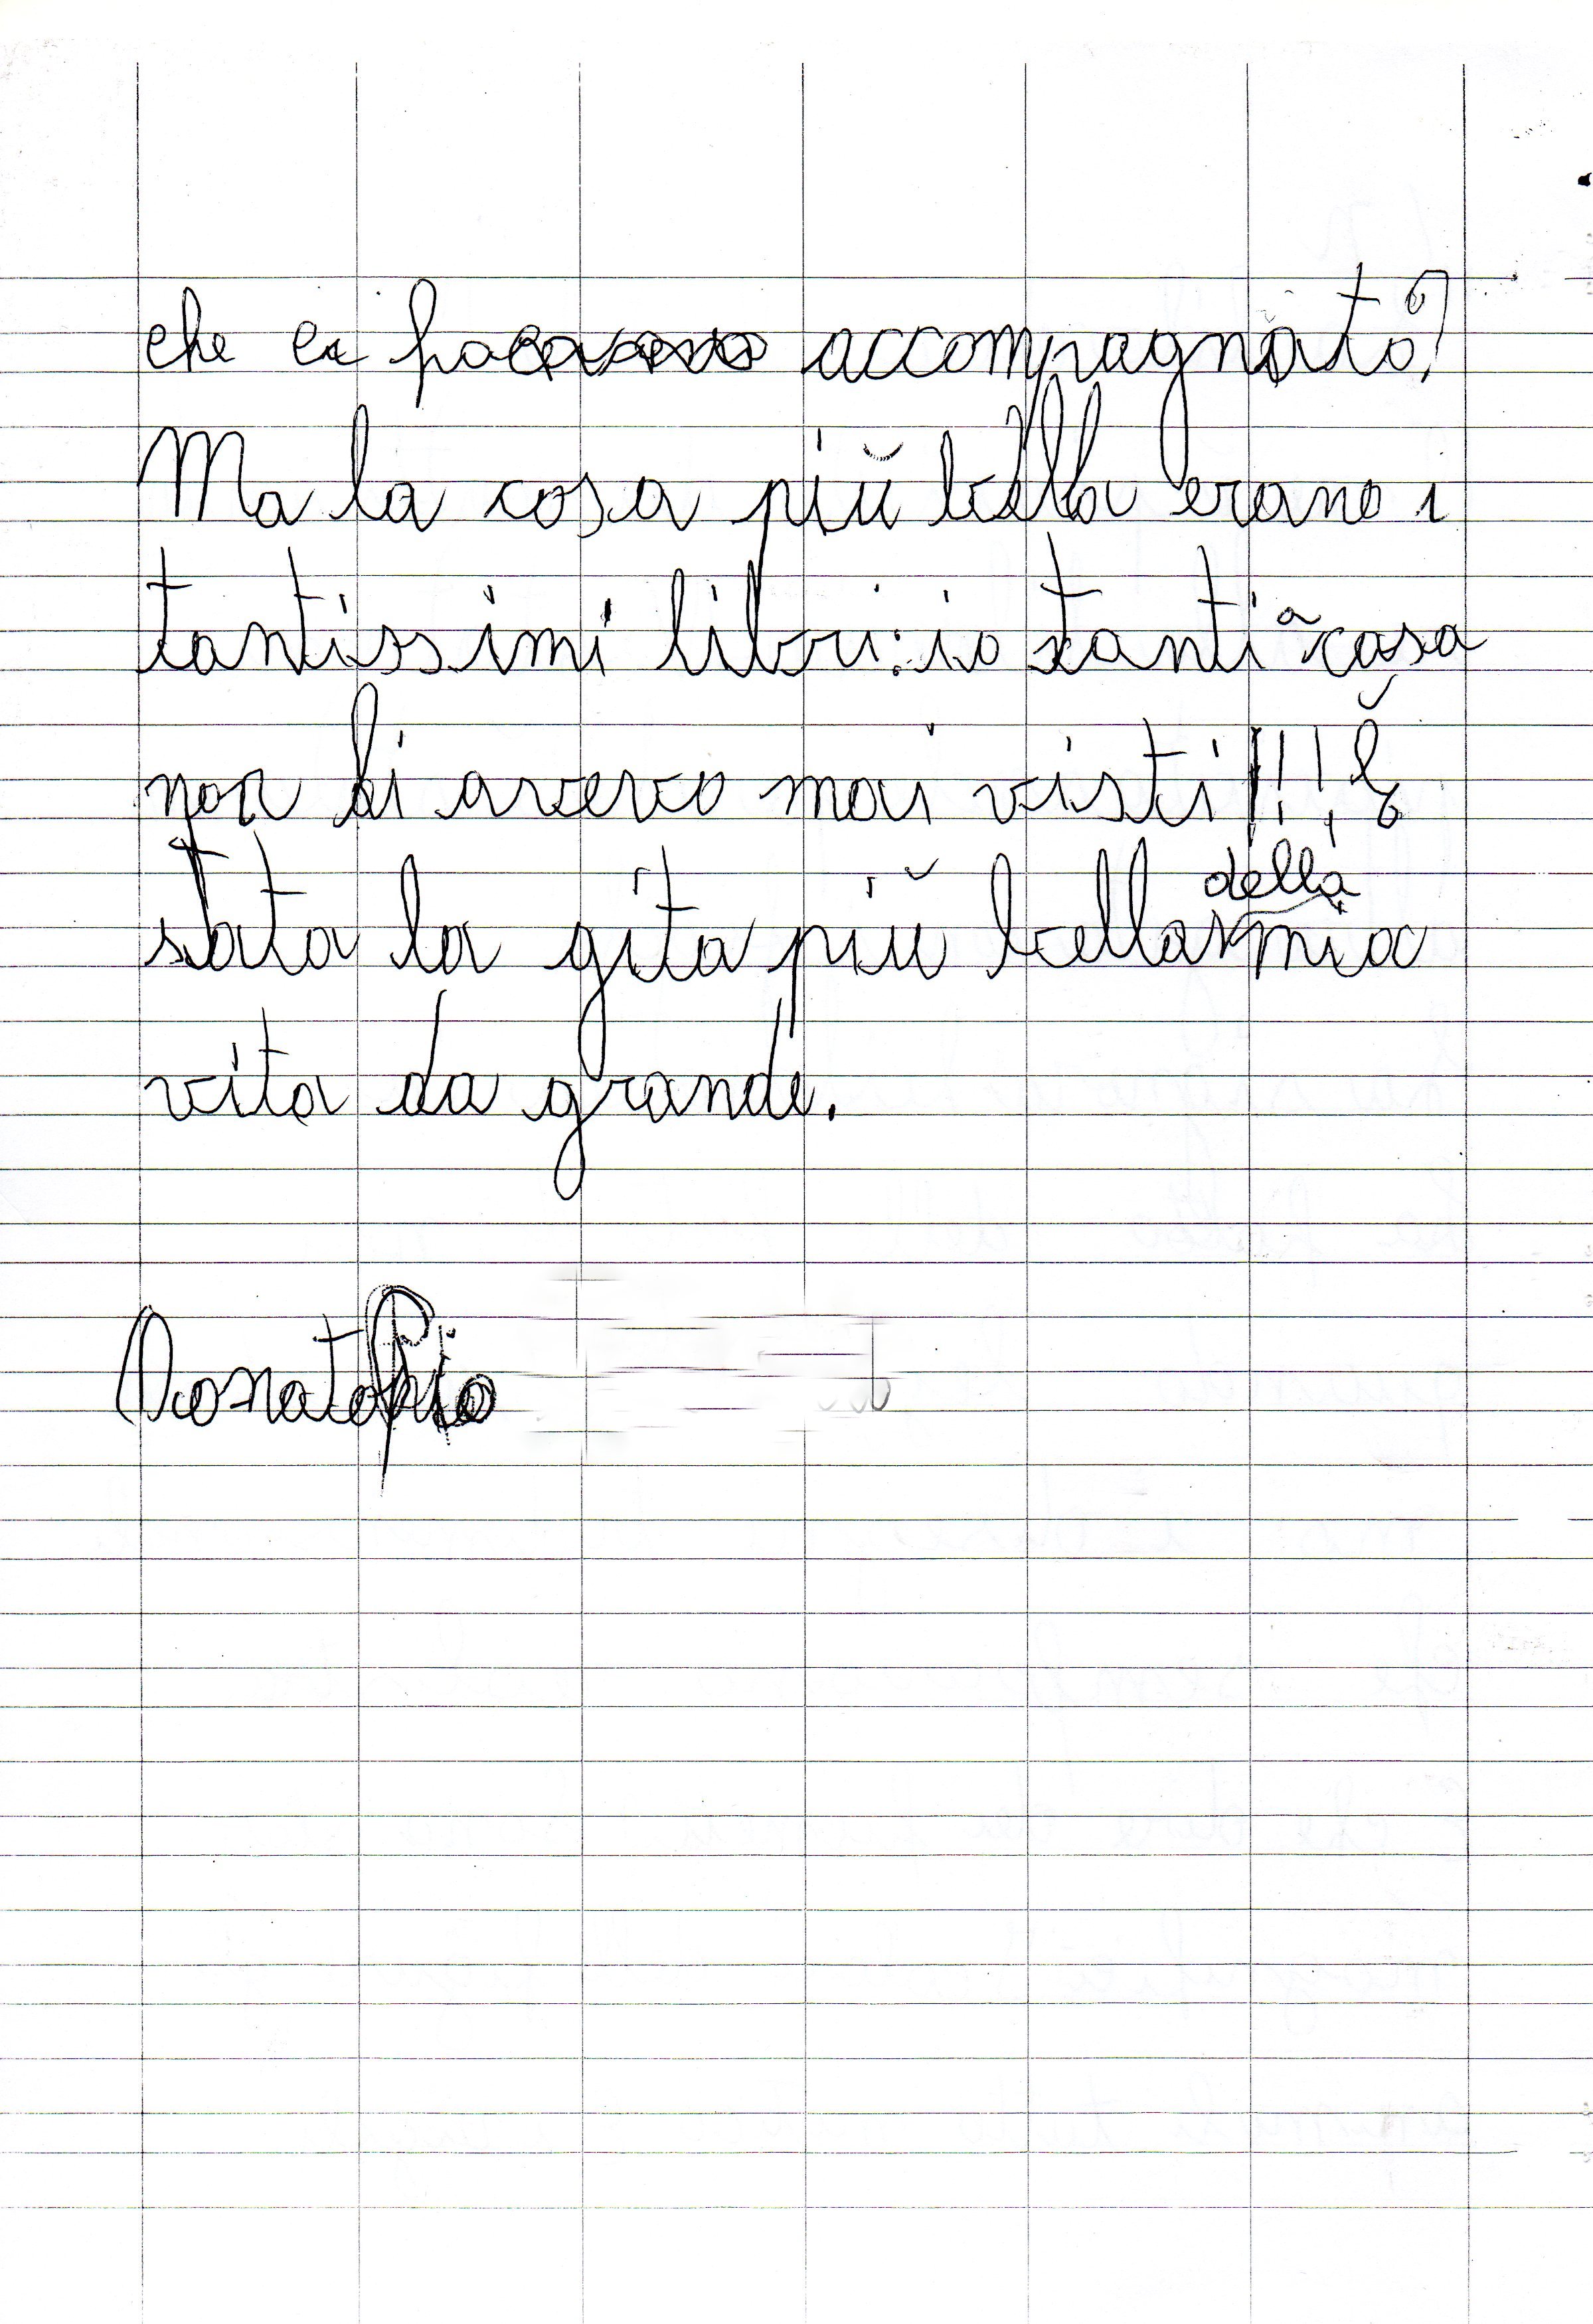 che ci ha accompagnato?
Ma la cosa più bella erano i
tantissimi libri: io tanti a casa
non li avevo mai visti!!! È
stata la gita più bella della mia
vita da grande.
Donato Pio